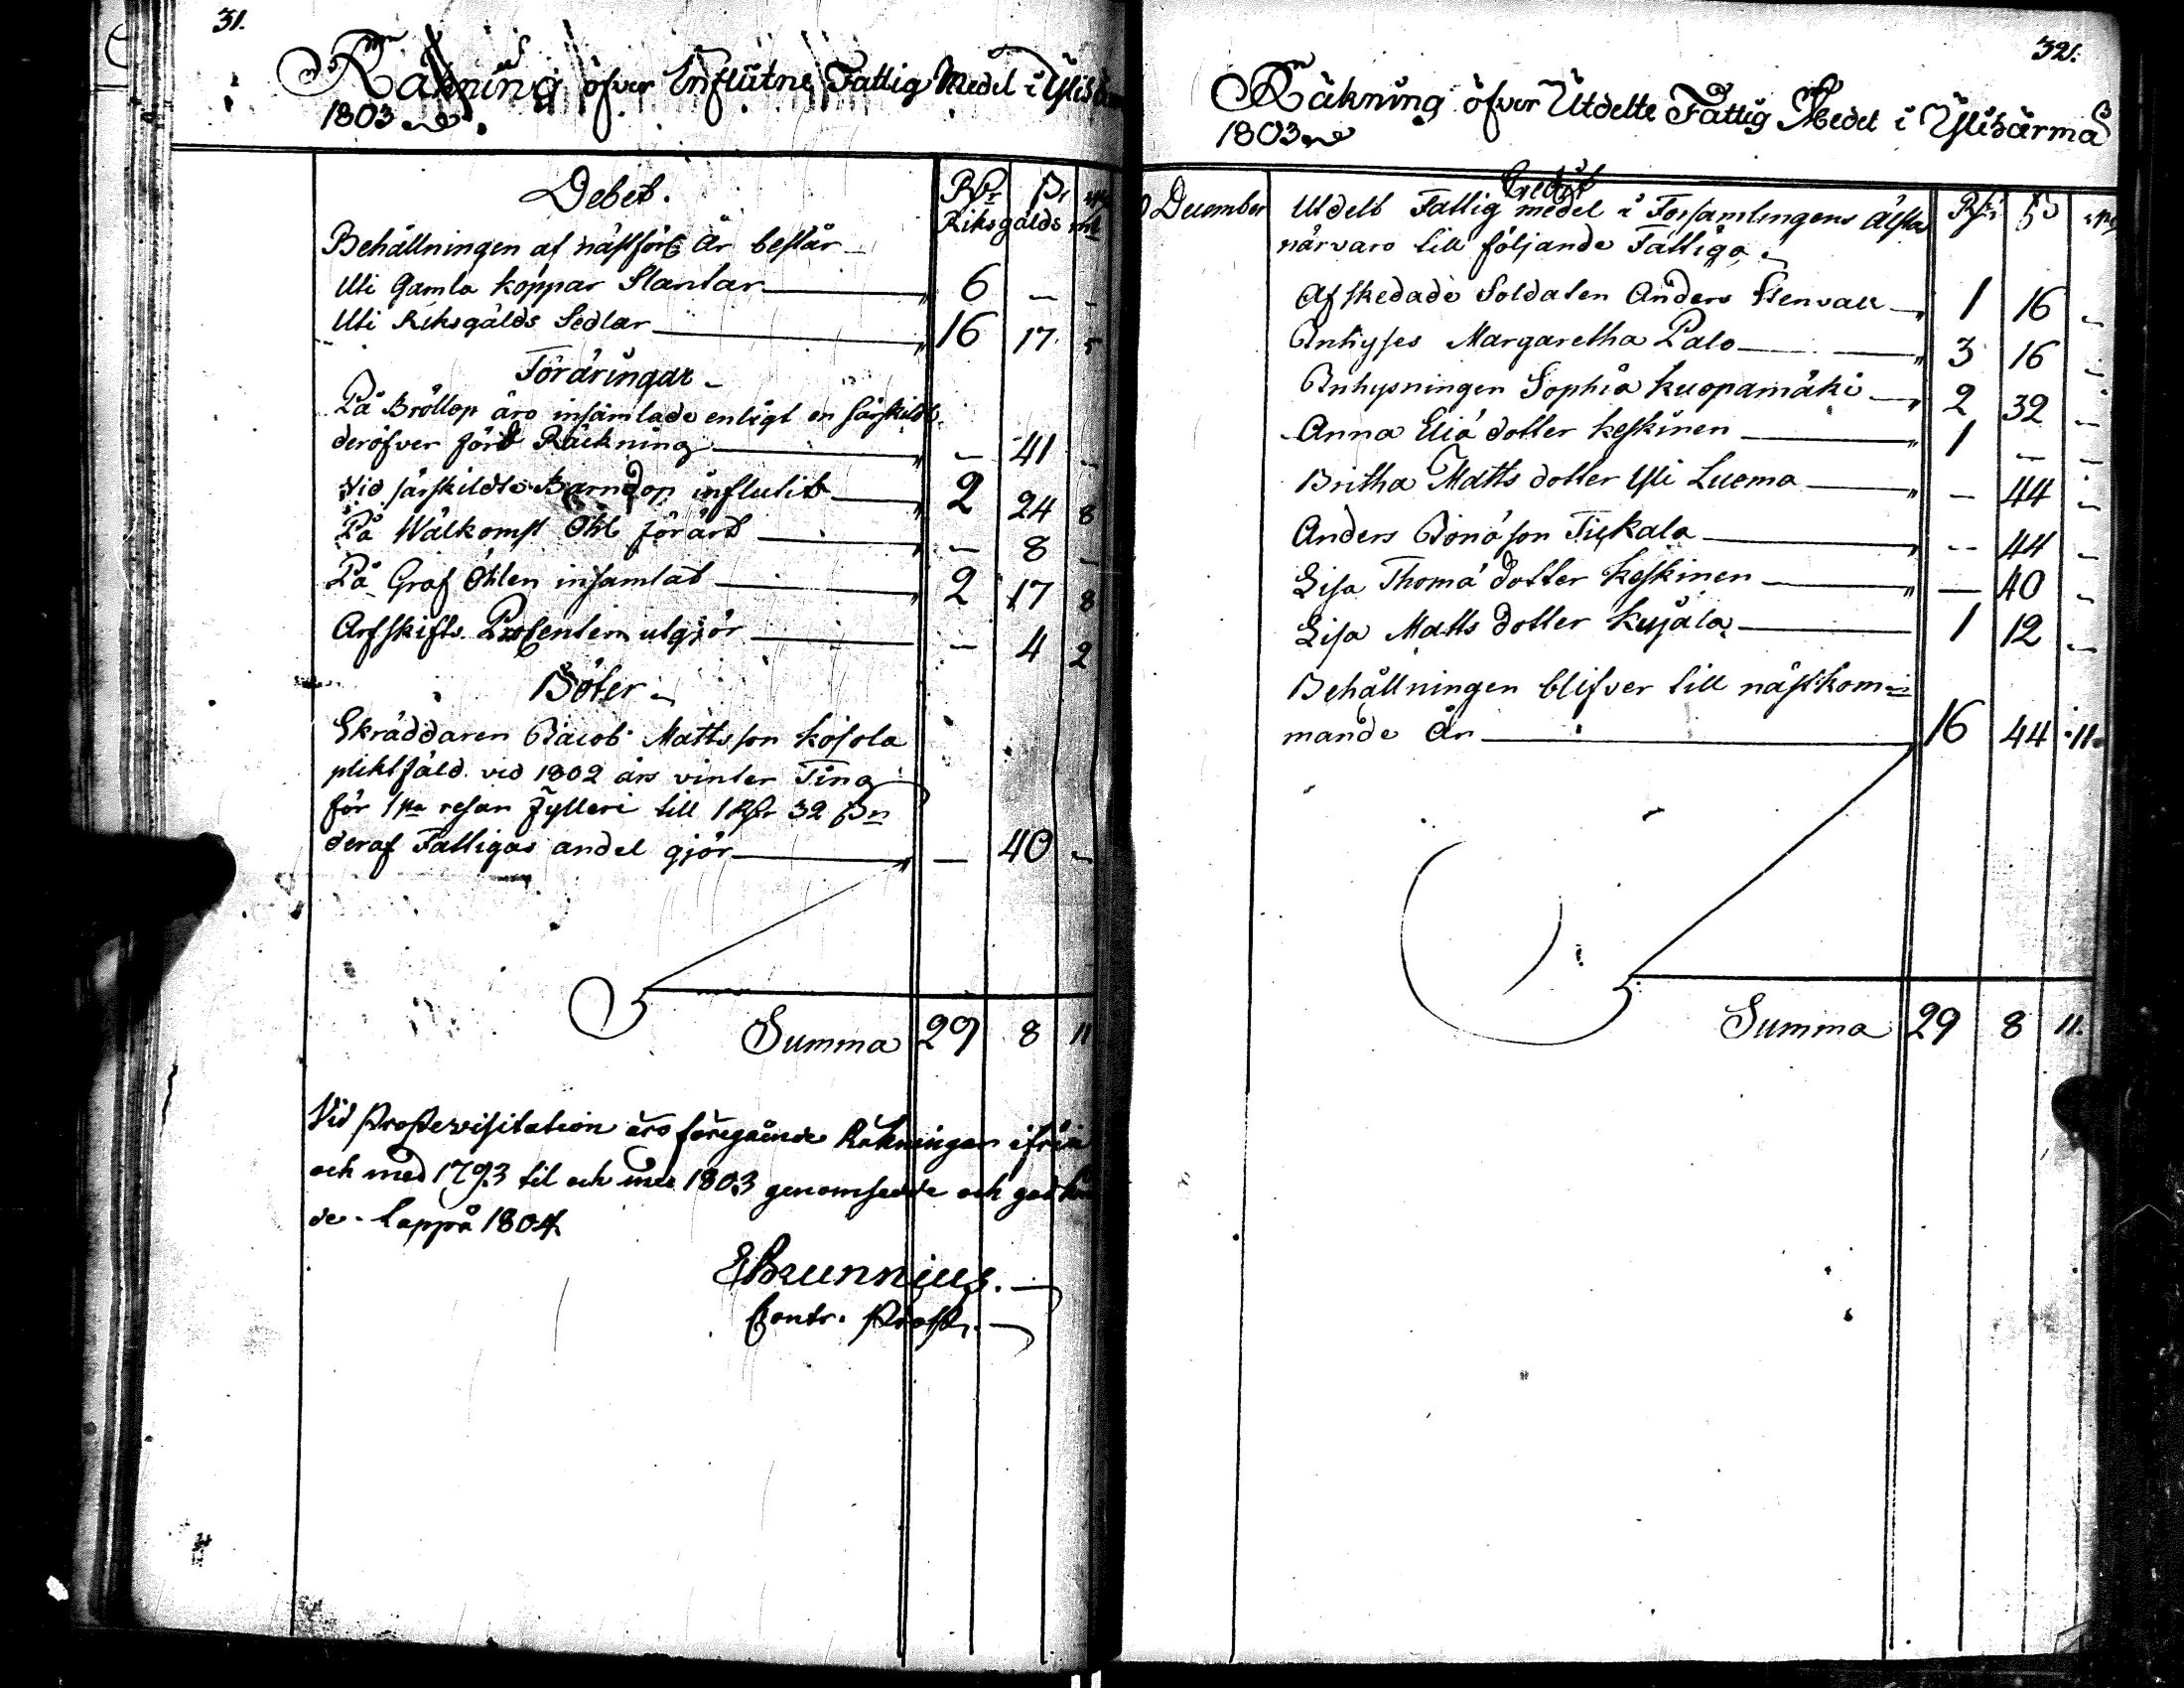 31.
Räkning öfver Influtne Fattig Medel i Ylisärm
1803
Debet. Rdr ß, rst
Riksgälds mt
Behållningen af näst förl. År består
Uti Gamla koppar Slantar 6 - -
Uti Riksgälds Sedlar 16 17. 5
Föräringar
På Bröllop äro insamlade enligt en särskildt
deröfver förd Räckning - 41 -
Vid särskildte Barndop influtit 2 24 8
På Wälkomst Öhl förärt - 8 -
På Graf Öhlen insamlat 2 17 8
Arfskifts Procenten utgjör - 4 2
Böter
Skräddaren Jacob Mattsson Kosola
pliktfäld vid 1802 års vinter Ting
för 1sta resan fylleri till 1 Rdr 32 ß
deraf Fattigas andel gjör - 40 -
Summa 29 8 11
Vid Prostevisitation äro föregående Räkningar ifrån
och med 1793 til och med 1803 genomsedde och godkän
de. Lappå 1804
EBrunnius.
Contr. Prost.
32.
Räkning öfver Utdelte Fattig Medel i Ylisärma
1803
Credit
December Utdelt Fattig medel i Församlingens älsta Rdr ß rst
närvaro till följande Fattiga
Afskedade Soldaten Anders Stenvall 1 16 -
Inhyses Margaretha Palo 3 16 -
Inhysningen Sophia Kuopamäki 2 32 -
Anna Eliä dotter Keskinen 1 - -
Britha Matts dotter Yli Luoma - 44 -
Anders Jonäson Tiukala - 44 -
Lisa Thomä dotter Keskinen - 40 -
Lisa Matts dotter Kujala 1 12 -
Behållningen blifver till nästkom=
mande År 16 44 11
Summa 29 8 11.